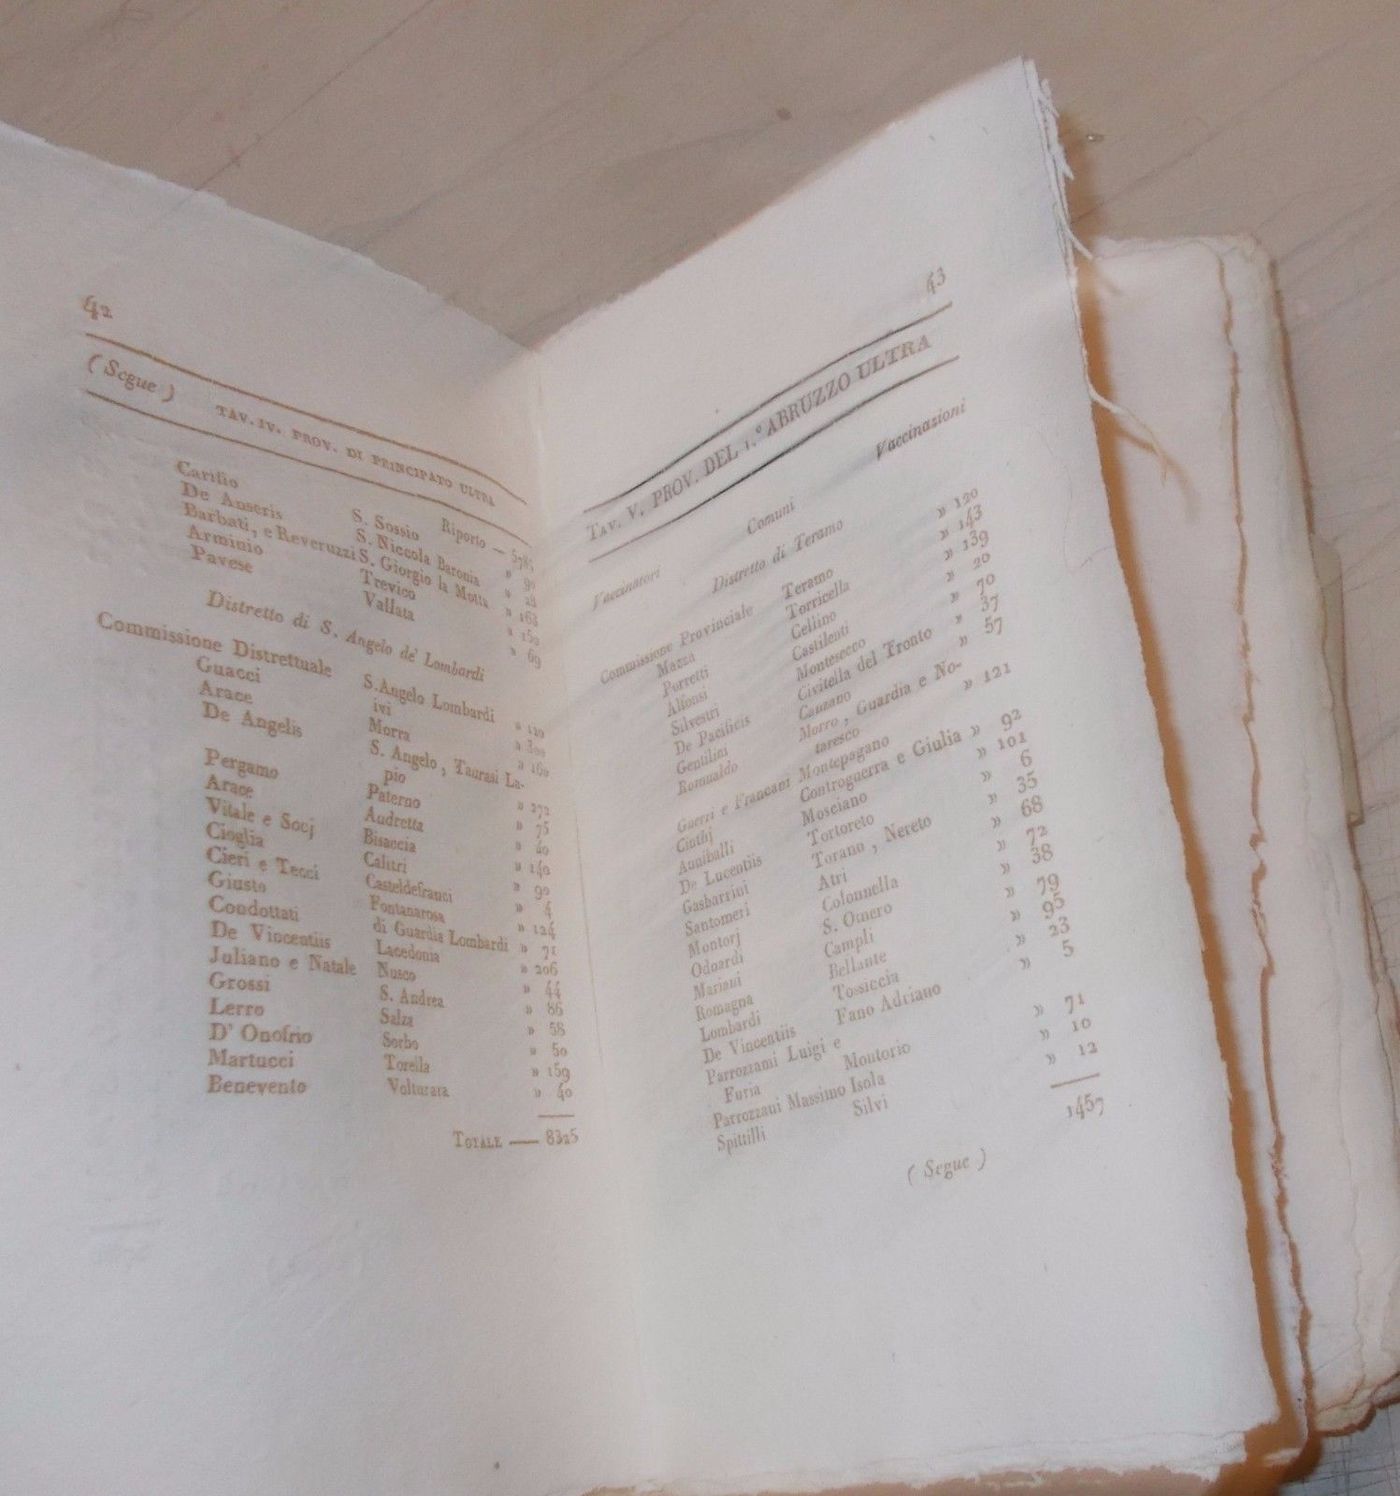 42
(Segue) TAV. IV. PROV. DI PRINCIPATO ULTRA
Riporto — 5785
Carifio S. Sossio » 90
De Anseris S. Niccola Baronia » 28
Barbati, e Reveruzzi S. Giorgio la Motta » 163
Arminio Trevico » 150
Pavese Vallata » 69
Distretto di S. Angelo de' Lombardi
Commissione Distrettuale S. Angelo Lombardi » 120
Guacci ivi » 300
Arace Morra » 160
De Angelis S. Angelo, Taurasi La-
pio » 272
Pergamo Paterno » 75
Arace Audretta » 20
Vitale e Socj Bisaccia » 140
Cioglia Calitri » 90
Cieri e Tecci Casteldefranci » 4
Giusto Fontanarosa » 124
Condottati di Guardia Lombardi » 71
De Vincentiis Lacedonia » 206
Juliano e Natale Nusco » 44
Grossi S. Andrea » 86
Lerro Salza » 58
D' Onofrio Sorbo » 50
Martucci Torella » 159
Benevento Volturara » 40
TOTALE — 8325
43
TAV. V. PROV. DEL 1.° ABRUZZO ULTRA
Vaccinatori Comuni Vaccinazioni
Distretto di Teramo
Commissione Provinciale Teramo » 120
Mazza Torricella » 143
Porretti Cellino » 139
Alfonsi Castilenti » 20
Silvestri Montesecco » 70
De Pacificis Civitella del Tronto » 37
Gentilini Canzano » 57
Romualdo Morro, Guardia e No-
taresco » 121
Guerri e Francani Montepagano » 92
Ciuthj Controguerra e Giulia » 101
Anniballi Mosciano » 6
De Lucentiis Tortoreto » 35
Gasbarrini Torano, Nereto » 68
Santomeri Atri » 72
Montorj Colonnella » 38
Odoardi S. Omero » 79
Mariani Campli » 95
Romagna Bellante » 23
Lombardi Tossiccia » 5
De Vincentiis Fano Adriano
Parrozzani Luigi e
Furia Montorio » 71
Parrozzani Massimo Isola » 10
Spittilli Silvi » 12
1457
(Segue)